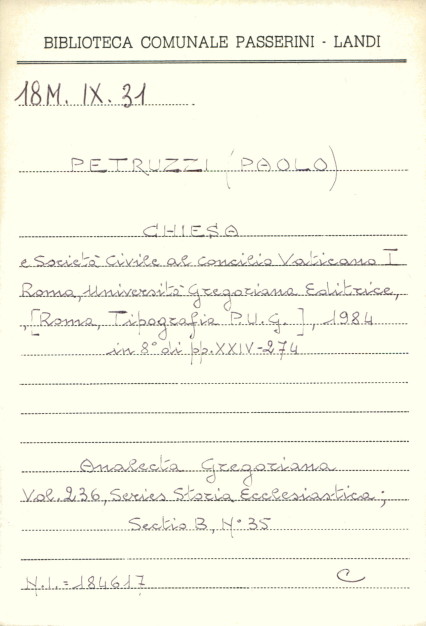 BIBLIOTECA COMUNALE PASSERINI - LANDI
18M. IX. 31
PETRUZZI (PAOLO)
CHIESA
e Società Civile al Concilio Vaticano I
Roma, Università Gregoriana Editrice,
, [Roma, Tipografia P.U.G. ], 1984
in 8° di pp. XXIV-274
Analecta Gregoriana
Vol. 236, Series Storia Ecclesiastica;
Sectio B, N° 35
N.I. = 184617
C